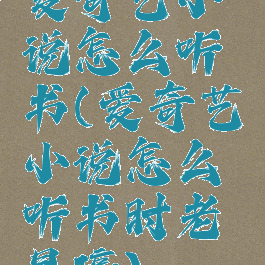 爱奇艺小
说怎么听
书(爱奇艺
小说怎么
听书时老
是停)